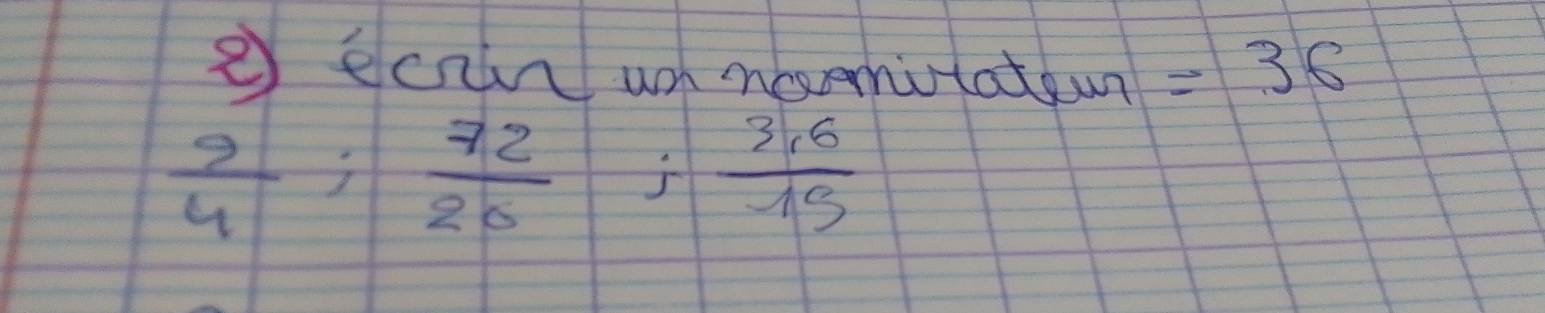 2) écrir un nominateur = 36
9/4 ; 72/26 ; 3,6/15